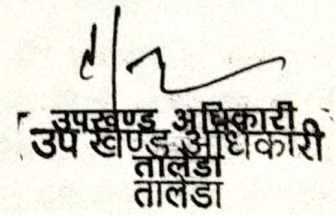 उपखण्ड अधिकारी
उप खण्ड अधिकारी
तालेडा
तालेडा